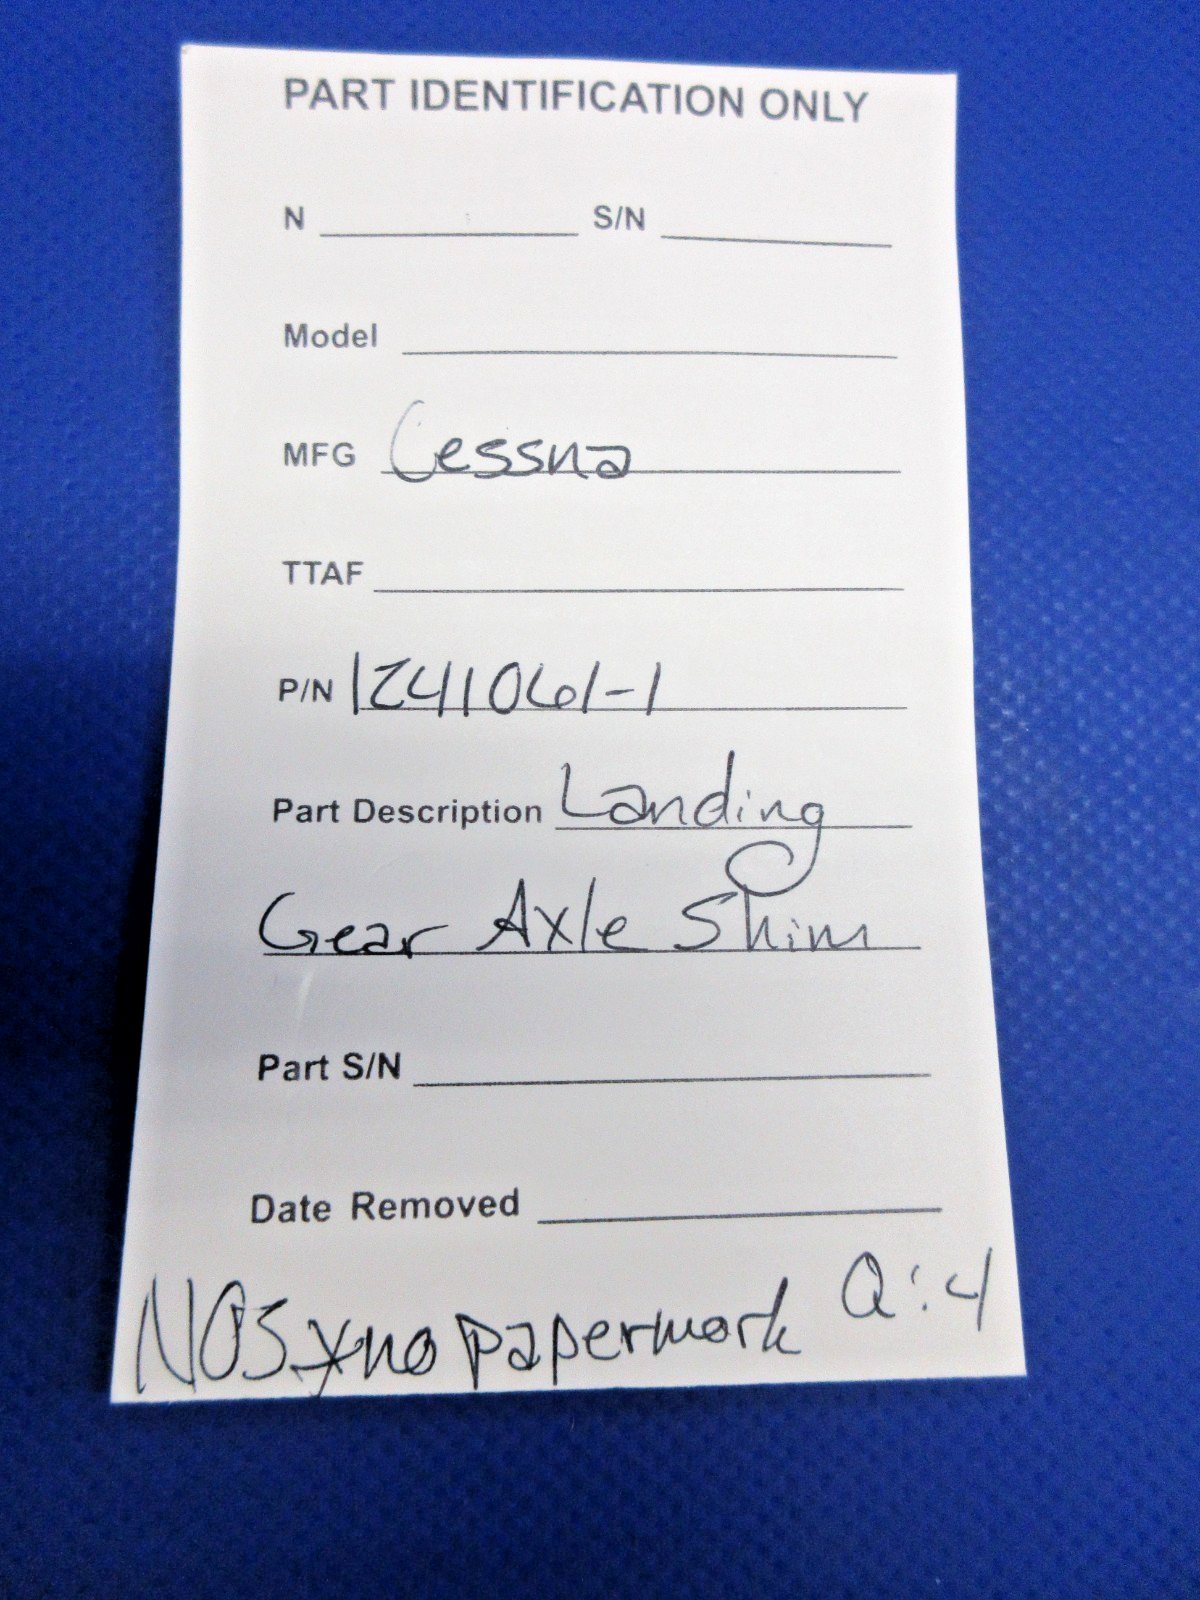 PART IDENTIFICATION ONLY
N S/N
Model
MFG Cessna
TTAF
P/N 1241061-1
Part Description Landing
Gear Axle Shim
Part S/N
Date Removed
Q:4
NOS no paperwork